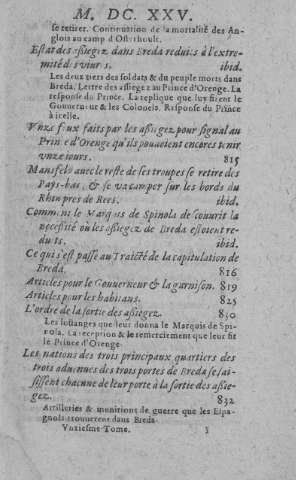 M. DC. XXV.
se retirer. Continuation de la mortalité des An-
glois au camp d'Osterhoult.
Estat des assiegez dans Breda reduits à l'extre-
mité des viures. ibid.
Les deux tiers des soldats & du peuple morts dans
Breda. Lettre des assiegez au Prince d'Orenge. La
response du Prince. La replique que luy firent le
Gouuerneur & les Colonels. Response du Prince
à icelle.
Vnze feux faits par les assiegez pour signal au
Prince d'Orenge qu'ils pouuoient encores tenir
vnze iours. 815
Mansfeld auec le reste de ses troupes se retire des
Pays-bas, & se va camper sur les bords du
Rhin pres de Rees. ibid.
Comment le Marquis de Spinola descouurit la
necessité où les assiegez de Breda estoient re-
duits. ibid.
Ce qui s'est passé au Traicté de la capitulation de
Breda. 816
Articles pour le Gouuerneur & la garnison. 819
Articles pour les habitans. 825
L'ordre de la sortie des assiegez. 830
Les loüanges que leur donna le Marquis de Spi-
nola. La reception & le remerciement que leur fit
le Prince d'Orenge.
Les nations des trois principaux quartiers des
trois aduenuës des trois portes de Breda se sai-
sissent chacune de leur porte à la sortie des assie-
gez. 832
Artilleries & munitions de guerre que les Espa-
gnols trouuerent dans Breda.
Vnziesme Tome. 3